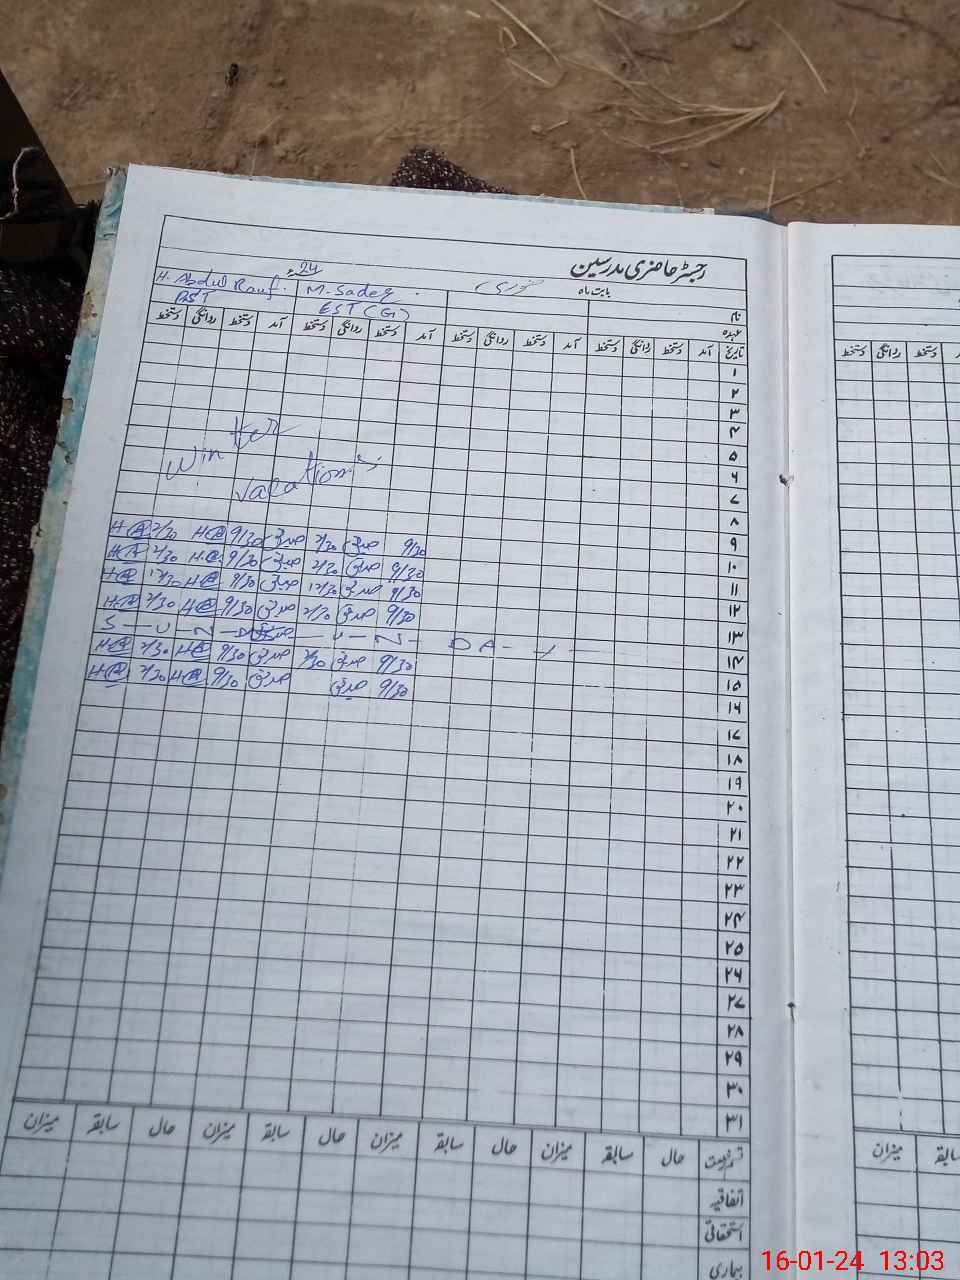 رجسٹر حاضری مدرسین
بابت ماہ جنوری 24ء
نام M. Sadeq. H. Abdul Rauf.
عہدہ EST (G) PST
تاریخ آمد دستخط روانگی دستخط آمد دستخط روانگی دستخط آمد دستخط روانگی دستخط آمد دستخط روانگی دستخط
۱
۲
۳
۴
۵
۶
۷
Winter
vacation's
۸
۹ 9/30 2/30 9/30 2/30
۱۰ 9/30 2/30 9/30 2/30
۱۱ 9/30 12/30 9/30 12/30
۱۲ 9/30 2/30 9/30 2/30
۱۳
S - U - N - D - U - N - DA - Y -
۱۴ 9/30 2/30 9/30 2/30
۱۵ 9/30 9/30 2/30
۱۶
۱۷
۱۸
۱۹
۲۰
۲۱
۲۲
۲۳
۲۴
۲۵
۲۶
۲۷
۲۸
۲۹
۳۰
۳۱
قسم رخصت حال سابقہ میزان حال سابقہ میزان حال سابقہ میزان حال سابقہ میزان
اتفاقیہ
استحقاقی
بیماری
دستخط روانگی دستخط
میزان
16-01-24 13:03